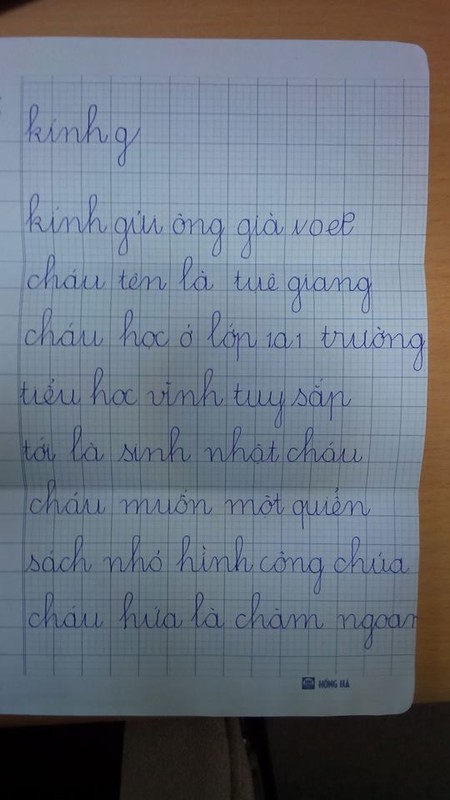 kính g
kính gửi ông già noel
cháu tên là tuệ giang
cháu học ở lớp 1a1 trường
tiểu học vĩnh tuy sắp
tới là sinh nhật cháu
cháu muốn một quiển
sách nhỏ hình công chúa
cháu hứa là chăm ngoan
HỒNG HÀ